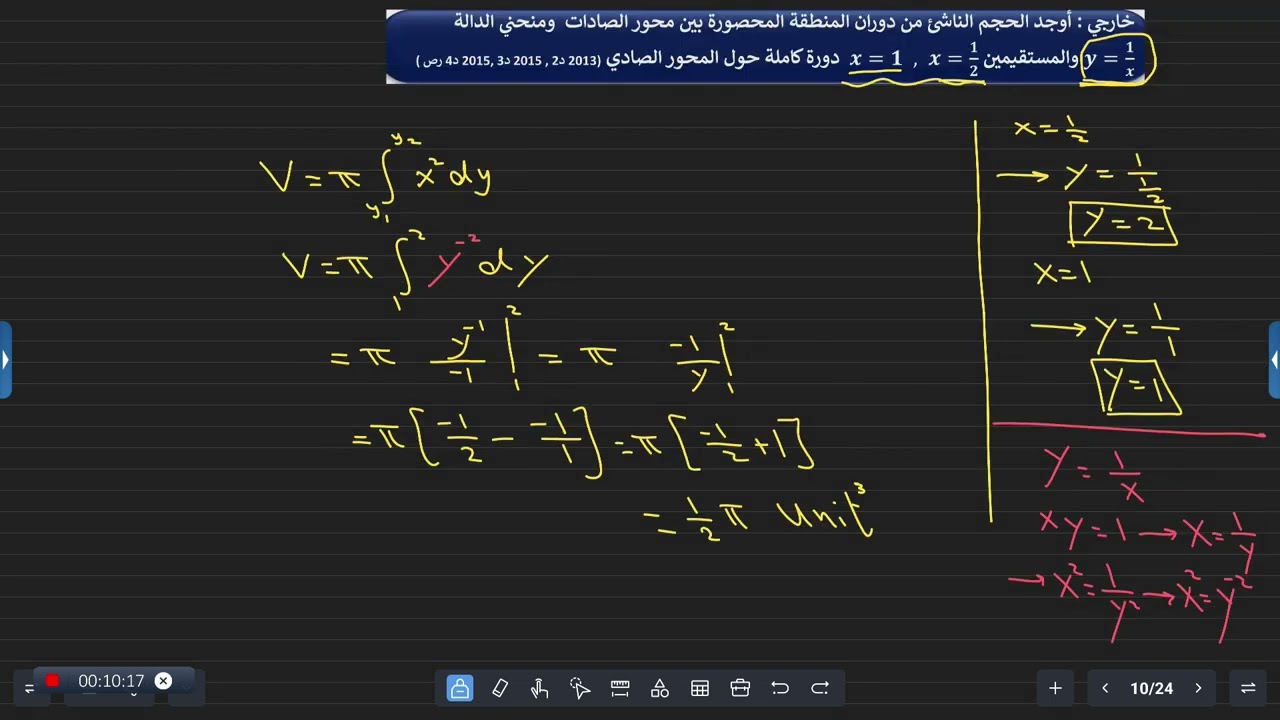 خارجي : أوجد الحجم الناشئ من دوران المنطقة المحصورة بين محور الصادات ومنحني الدالة
y = 1/x والمستقيمين x = 1/2 , x = 1 دورة كاملة حول المحور الصادي (2013 د2 , 2015 د3 ,2015 د4 رص )
V = π ∫_{y₁}^{y₂} x² dy
V = π ∫_{1}^{2} y⁻² dy
= π y⁻¹/-1 |₁² = π -1/y |₁²
= π [ -1/2 - -1/1 ] = π [ -1/2 + 1 ]
= 1/2 π unit³
x = 1/2
→ y = 1/(1/2)
y = 2
x = 1
→ y = 1/1
y = 1
y = 1/x
xy = 1 → x = 1/y
→ x² = 1/y² → x² = y⁻²
00:10:17
10/24